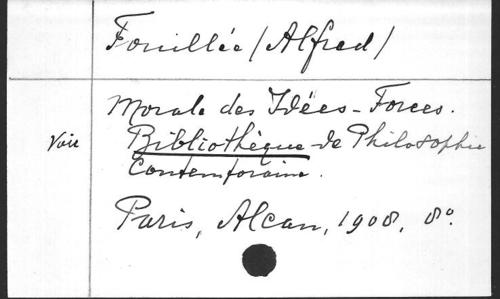 Fouillée (Alfred)
Morale des Idées-Forces.
Voir Bibliothèque de Philosophie
Contemporaine.
Paris, Alcan, 1908, 8°.